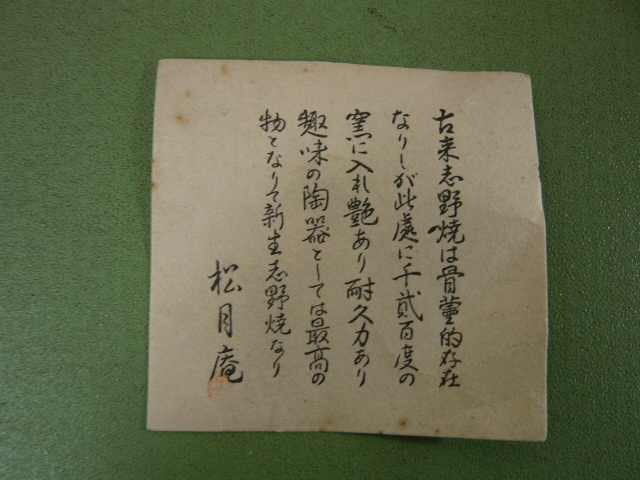 古来志野焼は骨董的存在
なりしが此處に千貳百度の
窯に入れ艶あり耐久力あり
趣味の陶器としては最高の
物となりて新生志野焼なり
松月庵